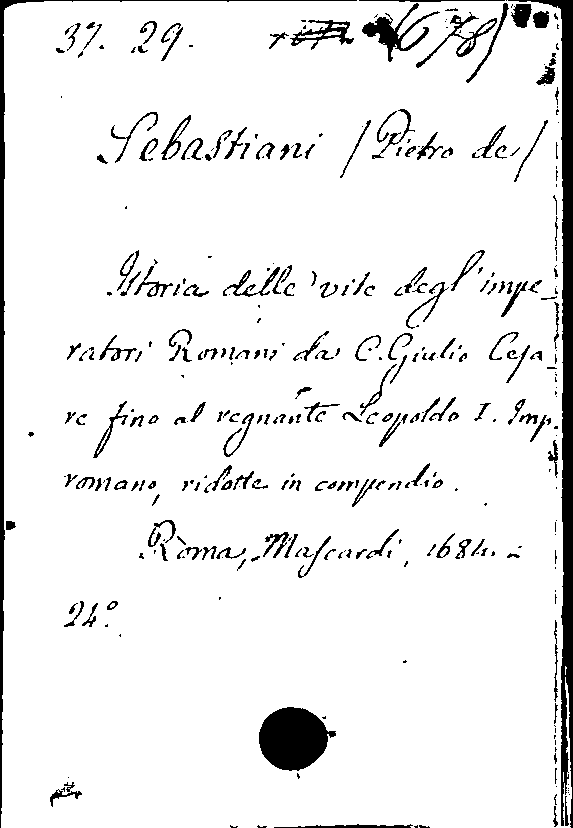 37. 29. (678)
Sebastiani /Pietro de/
Istoria delle vite degl' impe-
ratori Romani da C. Giulio Cesa-
re fino al regnante Leopoldo I. Imp.
romano, ridotte in compendio.
Roma, Mascardi, 1684. -
24°.